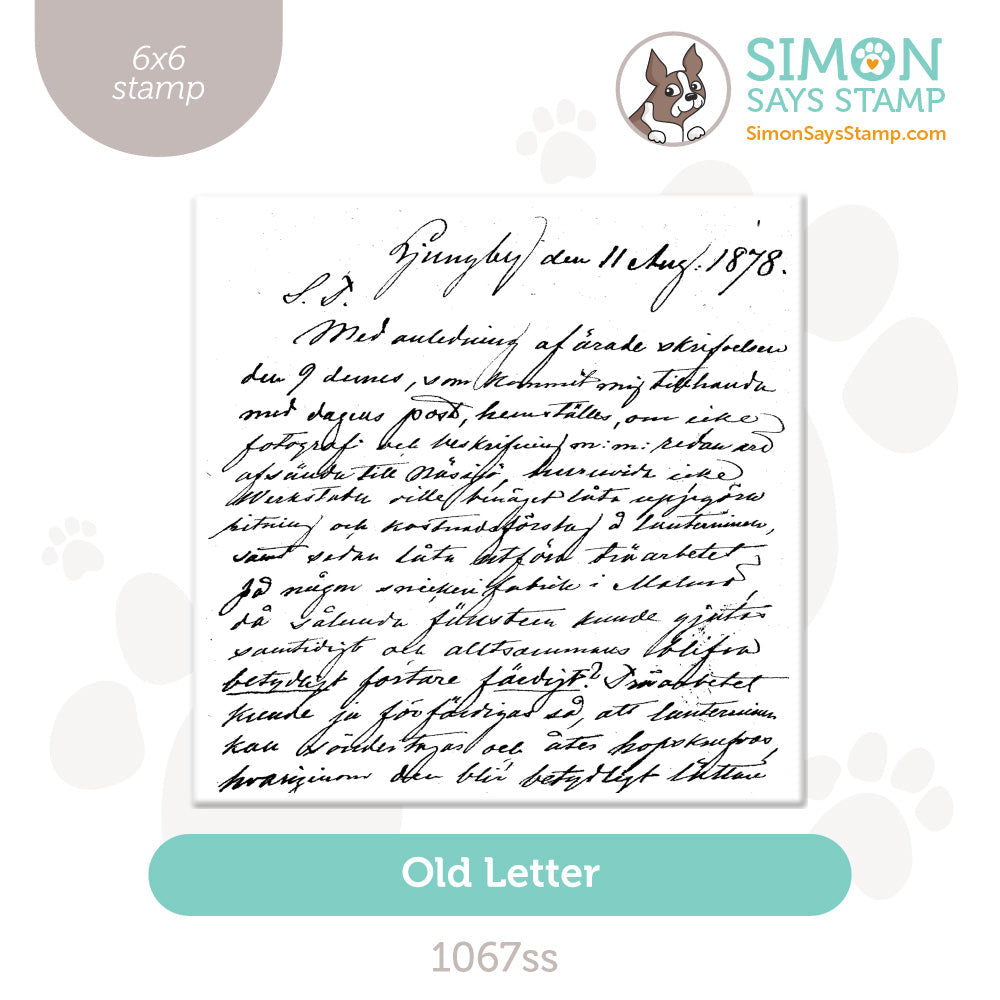 6x6
stamp
SIMON
SAYS STAMP
SimonSaysStamp.com
Ljungby den 11 Aug. 1878.
S. T.
Med anledning af ärade skrifvelsen
den 9 dennes, som kommit mig tillhanda
med dagens post, hemställes, om icke
fotografi och beskrifning m: m: redan äro
afsända till Nässjö, huruvida icke
Werkstaden ville benäget låta uppgöra
ritning och kostnadsförslag å lanterninen,
samt sedan låta utföra träarbetet
på någon snickerifabrik i Malmö,
då sålunda fönstren kunde gjutas
samtidigt och alltsammans blifva
betydligt fortare färdigt? Träarbetet
kunde ju förfärdigas så, att lanterninen
kan söndertagas och åter hopskrufvas,
hvarigenom den blir betydligt lättare
Old Letter
1067ss